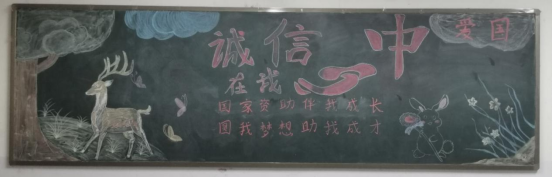 诚信
在我
中
爱国
国家资助伴我成长
圆我梦想助我成才